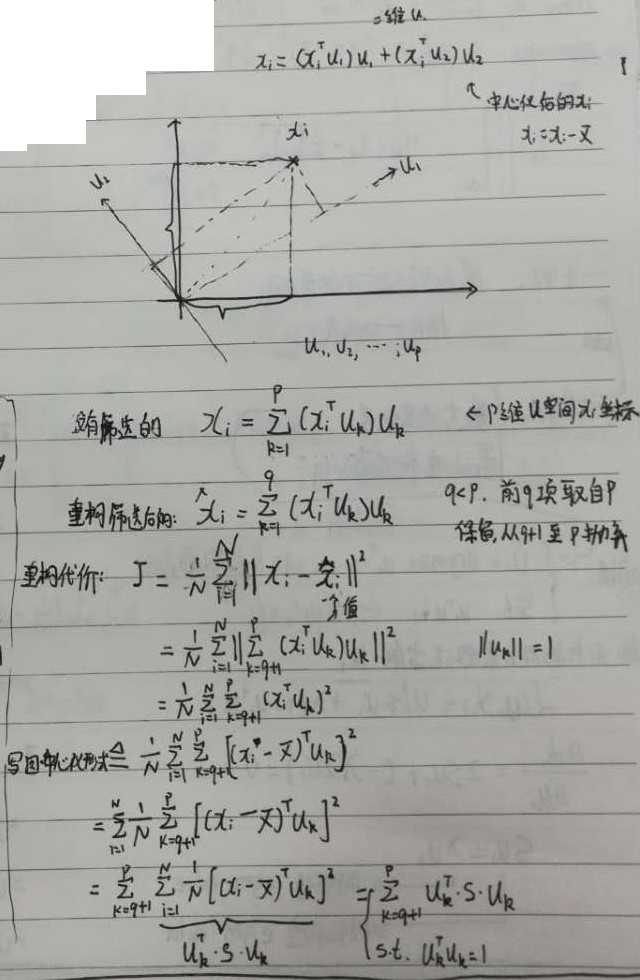 二维 u
xᵢ = (xᵢᵀu₁)u₁ + (xᵢᵀu₂)u₂
↖ 中心化后的xᵢ
xᵢ = xᵢ - x̄
xᵢ
u₂
u₁
u₁, u₂, ⋯, uₚ
没有筛选的 xᵢ = ∑ₖ₌₁ᵖ (xᵢᵀuₖ)uₖ ← p维U空间xᵢ坐标
重构筛选后的: x̂ᵢ = ∑ₖ₌₁^q (xᵢᵀuₖ)uₖ q<p. 前q项取自p
保留, 从q+1至p
重构代价: J = 1/N ∑ᵢ₌₁ᴺ ‖xᵢ - x̂ᵢ‖²
= 1/N ∑ᵢ₌₁ᴺ ‖∑ₖ₌q₊₁ᵖ (xᵢᵀuₖ)uₖ‖² ‖uₖ‖ = 1
= 1/N ∑ᵢ₌₁ᴺ ∑ₖ₌q₊₁ᵖ (xᵢᵀuₖ)²
写回中心化形式 ≜ 1/N ∑ᵢ₌₁ᴺ ∑ₖ₌q₊₁ᵖ [(xᵢ - x̄)ᵀuₖ]²
= ∑ᵢ₌₁ᴺ 1/N ∑ₖ₌q₊₁ᵖ [(xᵢ - x̄)ᵀuₖ]²
= ∑ₖ₌q₊₁ᵖ ∑ᵢ₌₁ᴺ 1/N [(xᵢ - x̄)ᵀuₖ]² = { ∑ₖ₌q₊₁ᵖ uₖᵀ·S·uₖ
uₖᵀ·S·uₖ s.t. uₖᵀuₖ=1